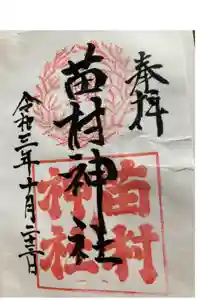 奉拝
苗村神社
苗村
神社
令和三年十月二十三日